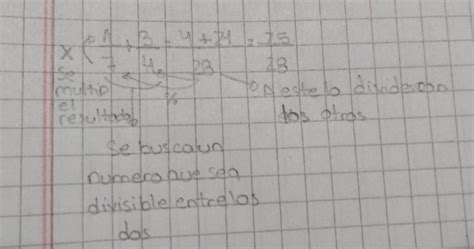 x ( 1/7 + 3/4 = 4+21/28 = 25/28
se
multip
el
resultado
en este lo dividen con
los otros
se busca un
numero que sea
divisible entre los
dos